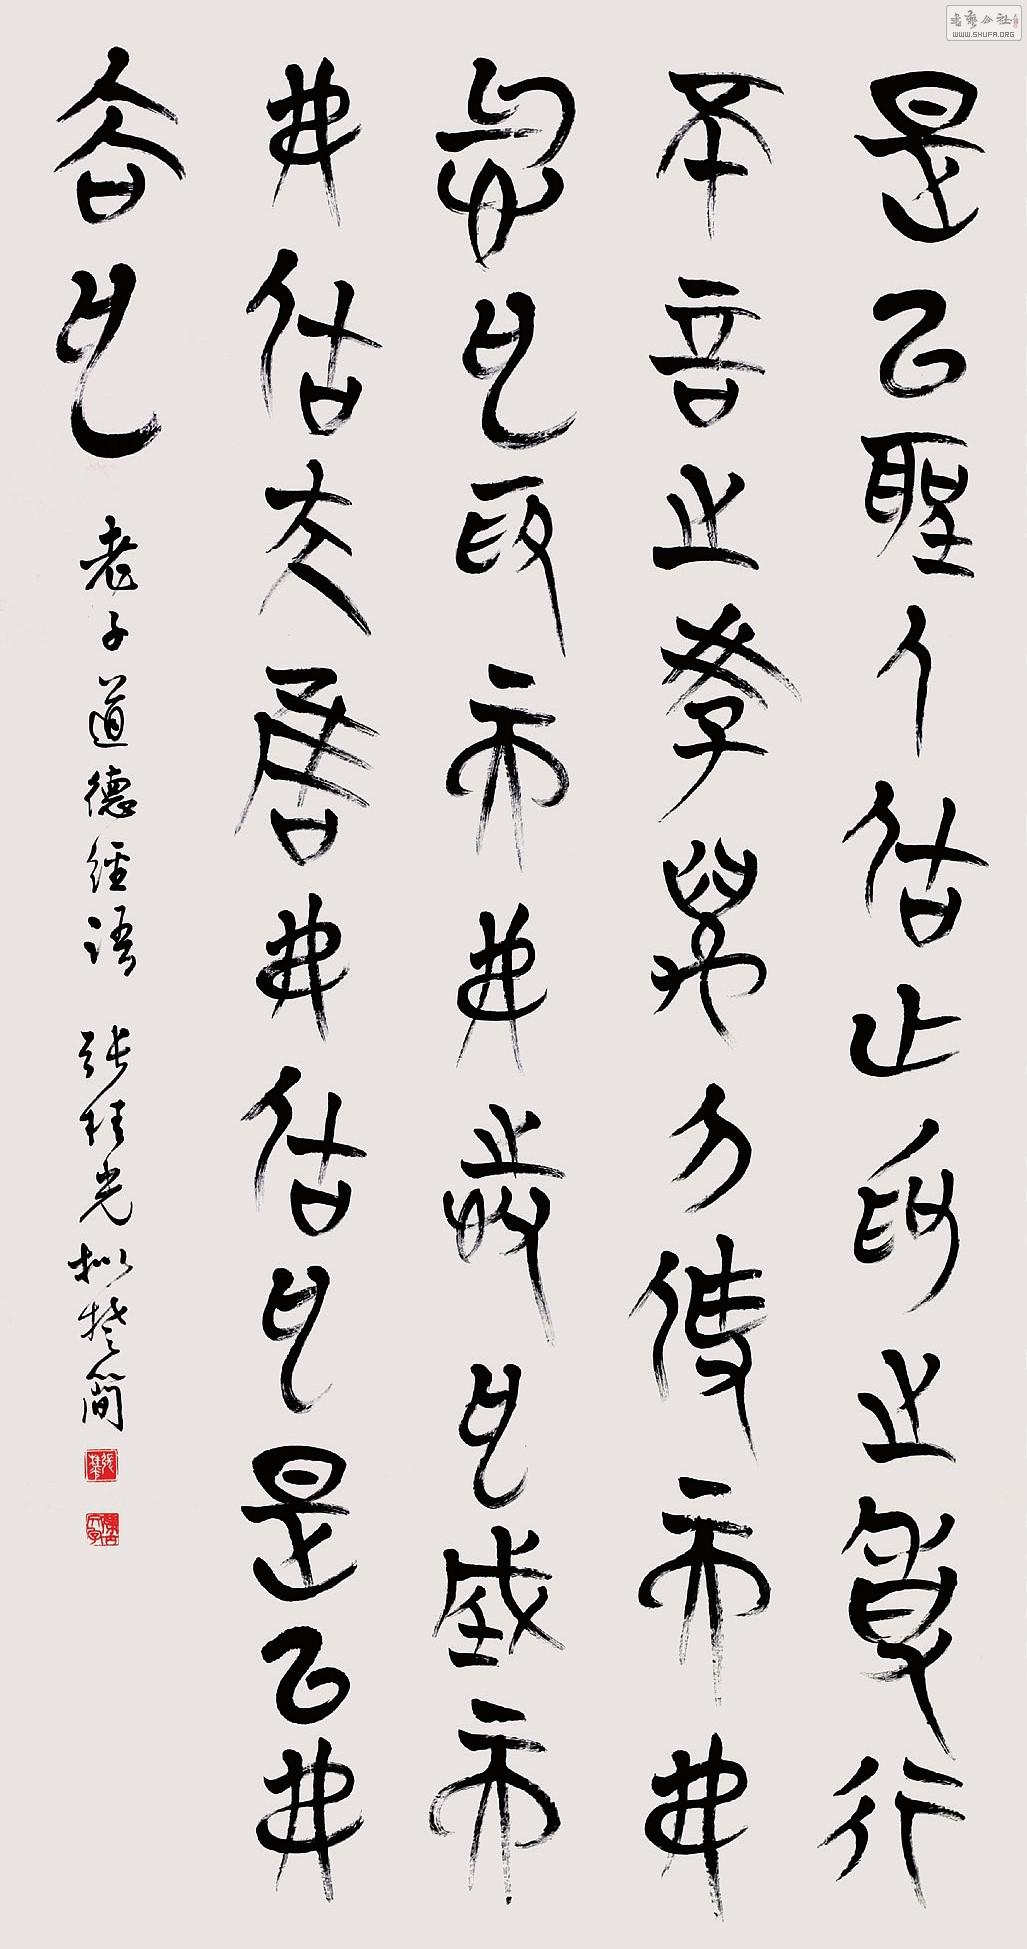 是以聖人居亡為之事行
不言之教萬物作而弗
始也為而弗恃也成而
弗居夫唯弗居也是以弗
去也
老子道德經語 張桂光擬楚簡
書藝公社
WWW.SHUFA.ORG